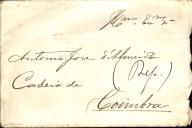 Ilmo. Exmo. Sr.
Antonio Jose d'Almeida
(Dep.)
Cadeia de
Coimbra